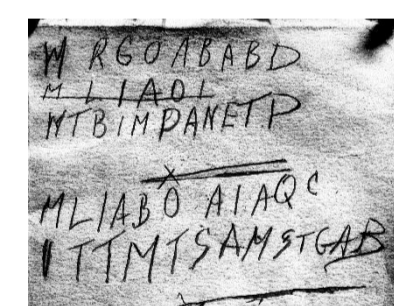 WRGOABABD
MLIAOI
WTBIMPANETP
MLIABO AIAQC
ITTMTSAMSTGAB